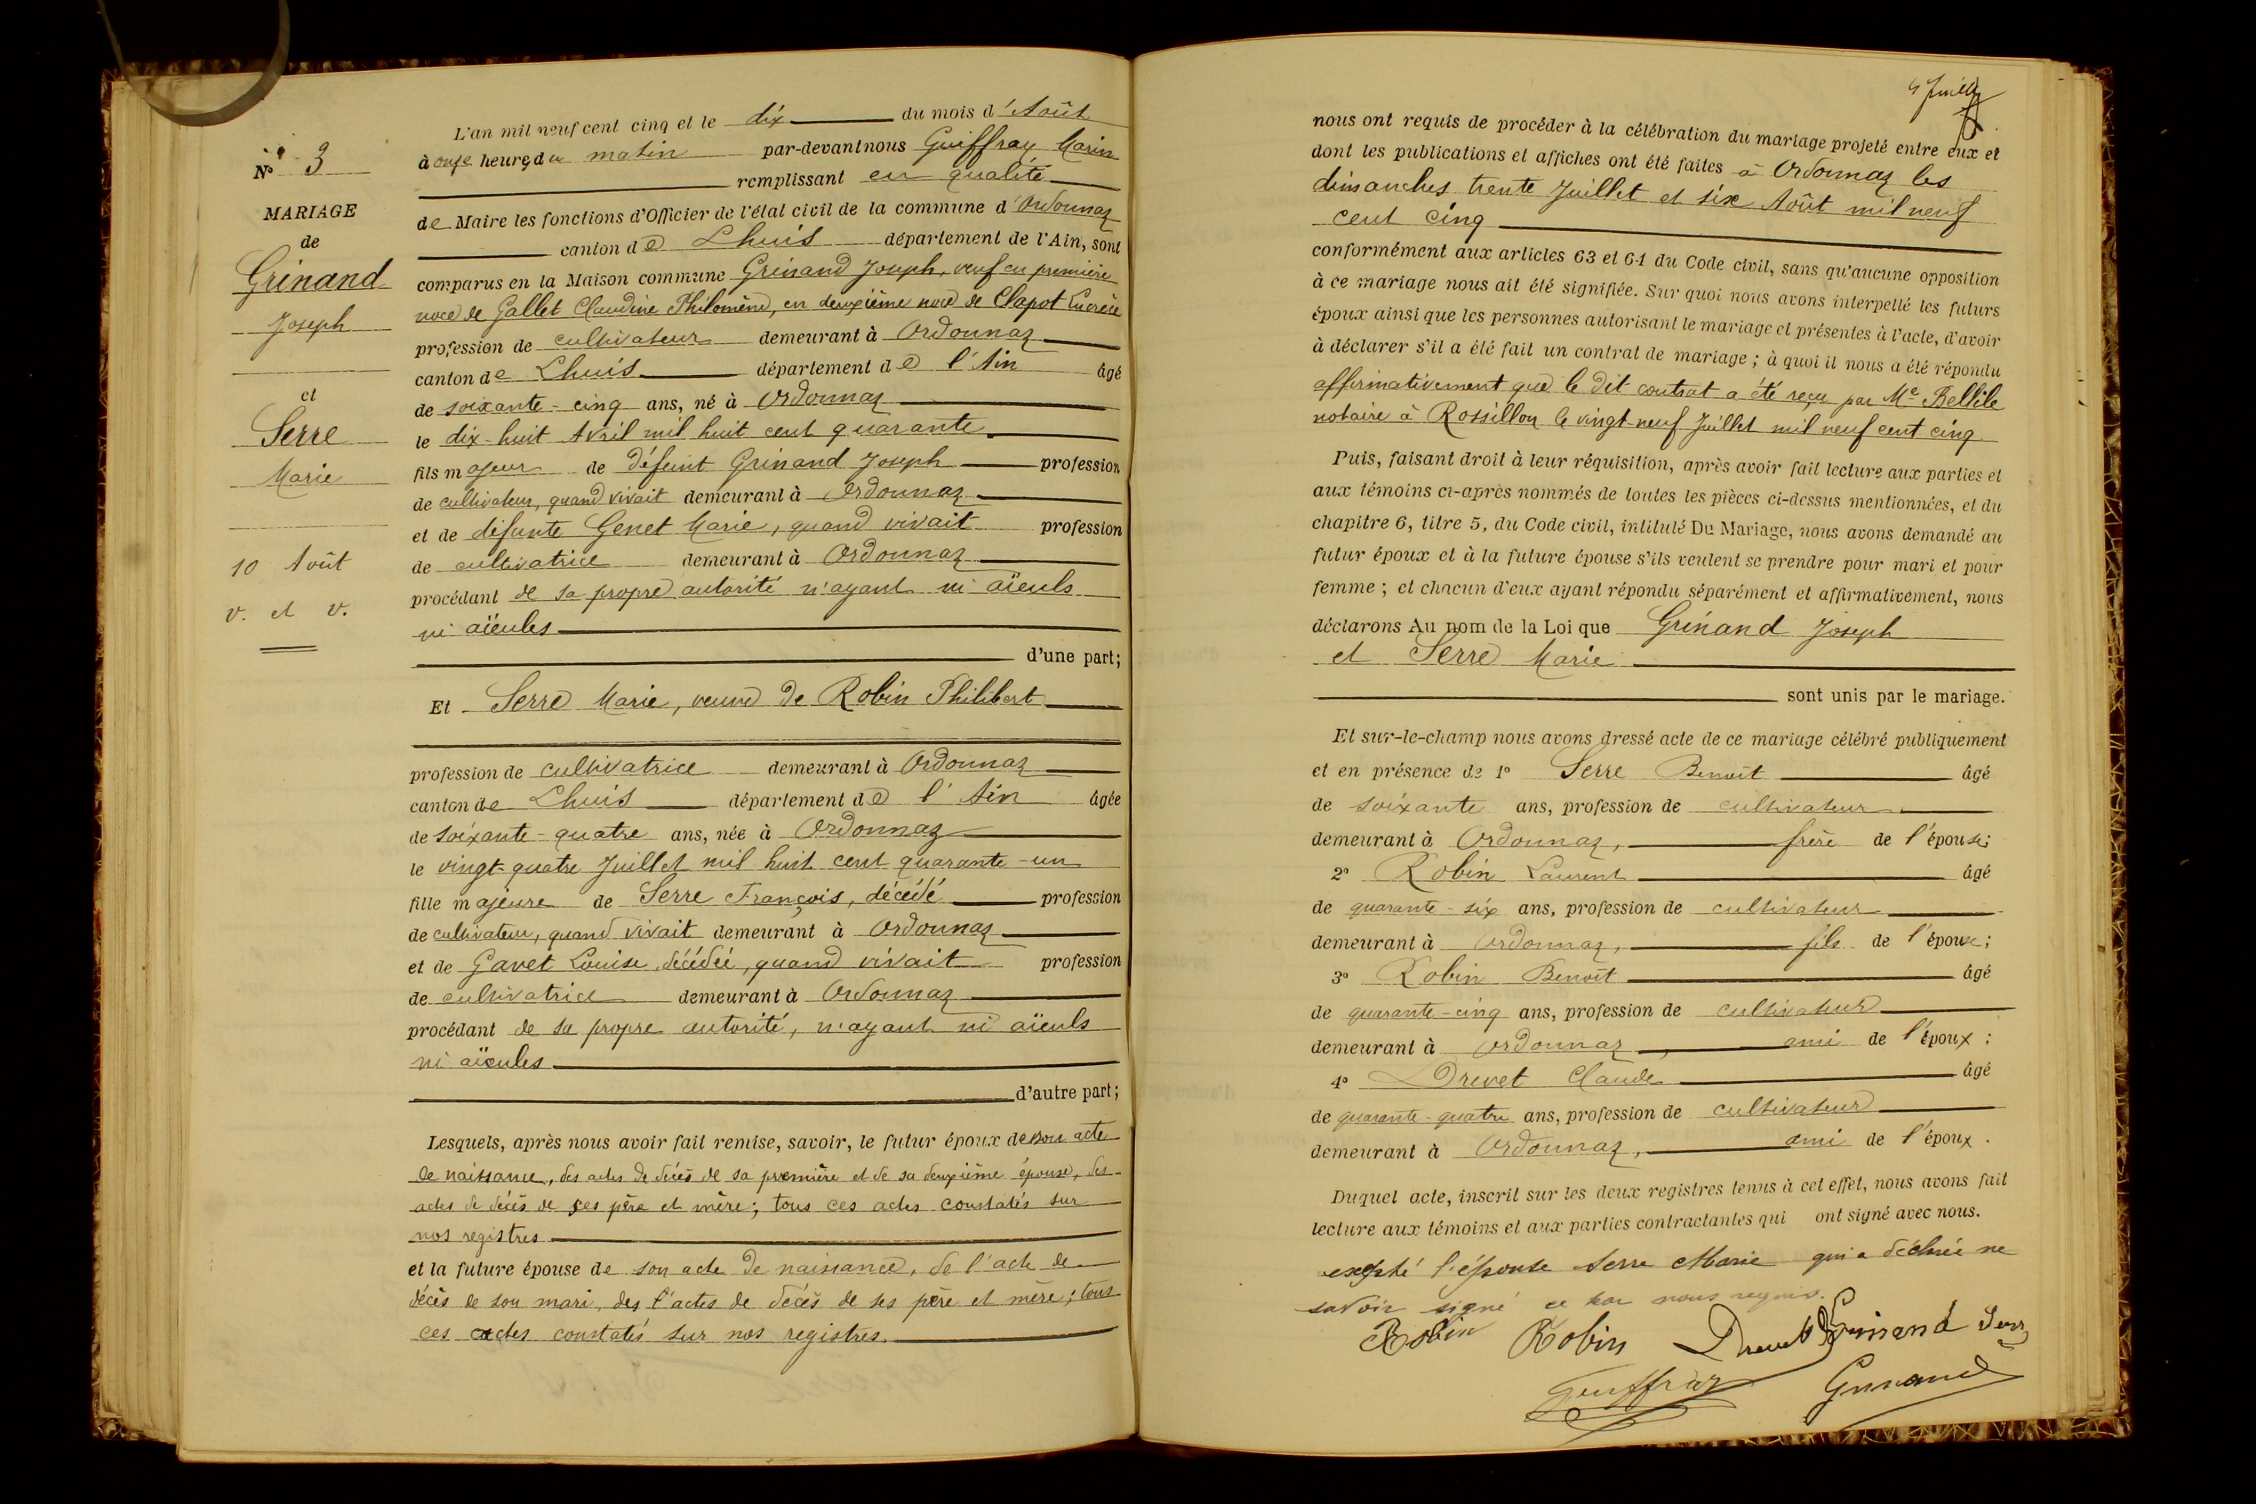 N° 3
MARIAGE
de
Grinand
Joseph
et
Serre
Marie
10 Août
v. et v.
L'an mil neuf cent cinq et le dix du mois d'Août
à onze heures du matin par-devant nous Guiffray Marin
remplissant en qualité
de Maire les fonctions d'Officier de l'état civil de la commune d'Ordonnaz
canton de Lhuis département de l'Ain, sont
comparus en la Maison commune Grinand Joseph, veuf en première
noce de Gallet Claudine Philomène, en deuxième noce de Chapot Lucrèce
profession de cultivateur demeurant à Ordonnaz
canton de Lhuis département de l'Ain âgé
de soixante-cinq ans, né à Ordonnaz
le dix-huit Avril mil huit cent quarante
fils majeur de défunt Grinand Joseph profession
de cultivateur, quand vivait demeurant à Ordonnaz
et de défunte Genet Marie, quand vivait profession
de cultivatrice demeurant à Ordonnaz
procédant de sa propre autorité n'ayant ni aïeuls
ni aïeules
d'une part;
Et Serre Marie, veuve de Robin Philibert
profession de cultivatrice demeurant à Ordonnaz
canton de Lhuis département de l'Ain âgée
de soixante-quatre ans, née à Ordonnaz
le vingt-quatre Juillet mil huit cent quarante-un
fille majeure de Serre François, décédé profession
de cultivateur, quand vivait demeurant à Ordonnaz
et de Gavet Louise, décédée, quand vivait profession
de cultivatrice demeurant à Ordonnaz
procédant de sa propre autorité, n'ayant ni aïeuls
ni aïeules
d'autre part;
Lesquels, après nous avoir fait remise, savoir, le futur époux de son acte
de naissance, des actes de décès de sa première et de sa deuxième épouse, des
actes de décès de ses père et mère; tous ces actes constatés sur
nos registres
et la future épouse de son acte de naissance, de l'acte de
décès de son mari, des actes de décès de ses père et mère; tous
ces actes constatés sur nos registres.
nous ont requis de procéder à la célébration du mariage projeté entre eux et
dont les publications et affiches ont été faites à Ordonnaz les
dimanches trente Juillet et six Août mil neuf
cent cinq
conformément aux articles 63 et 64 du Code civil, sans qu'aucune opposition
à ce mariage nous ait été signifiée. Sur quoi nous avons interpellé les futurs
époux ainsi que les personnes autorisant le mariage et présentes à l'acte, d'avoir
à déclarer s'il a été fait un contrat de mariage; à quoi il nous a été répondu
affirmativement que le dit contrat a été reçu par Me Bellile
notaire à Rossillon le vingt-neuf Juillet mil neuf cent cinq
Puis, faisant droit à leur réquisition, après avoir fait lecture aux parties et
aux témoins ci-après nommés de toutes les pièces ci-dessus mentionnées, et du
chapitre 6, titre 5, du Code civil, intitulé Du Mariage, nous avons demandé au
futur époux et à la future épouse s'ils veulent se prendre pour mari et pour
femme; et chacun d'eux ayant répondu séparément et affirmativement, nous
déclarons Au nom de la Loi que Grinand Joseph
et Serre Marie
sont unis par le mariage.
Et sur-le-champ nous avons dressé acte de ce mariage célébré publiquement
et en présence de 1° Serre Benoît âgé
de soixante ans, profession de cultivateur
demeurant à Ordonnaz, frère de l'épouse;
2° Robin Laurent âgé
de quarante-six ans, profession de cultivateur
demeurant à Ordonnaz, fils de l'épouse;
3° Robin Benoît âgé
de quarante-cinq ans, profession de cultivateur
demeurant à Ordonnaz, ami de l'époux;
4° Drevet Claude âgé
de quarante-quatre ans, profession de cultivateur
demeurant à Ordonnaz, ami de l'époux.
Duquel acte, inscrit sur les deux registres tenus à cet effet, nous avons fait
lecture aux témoins et aux parties contractantes qui ont signé avec nous.
excepté l'épouse Serre Marie qui a déclaré ne
savoir signé ce
Robin Robin Drevet Grinand Serre
Guiffray Grinand